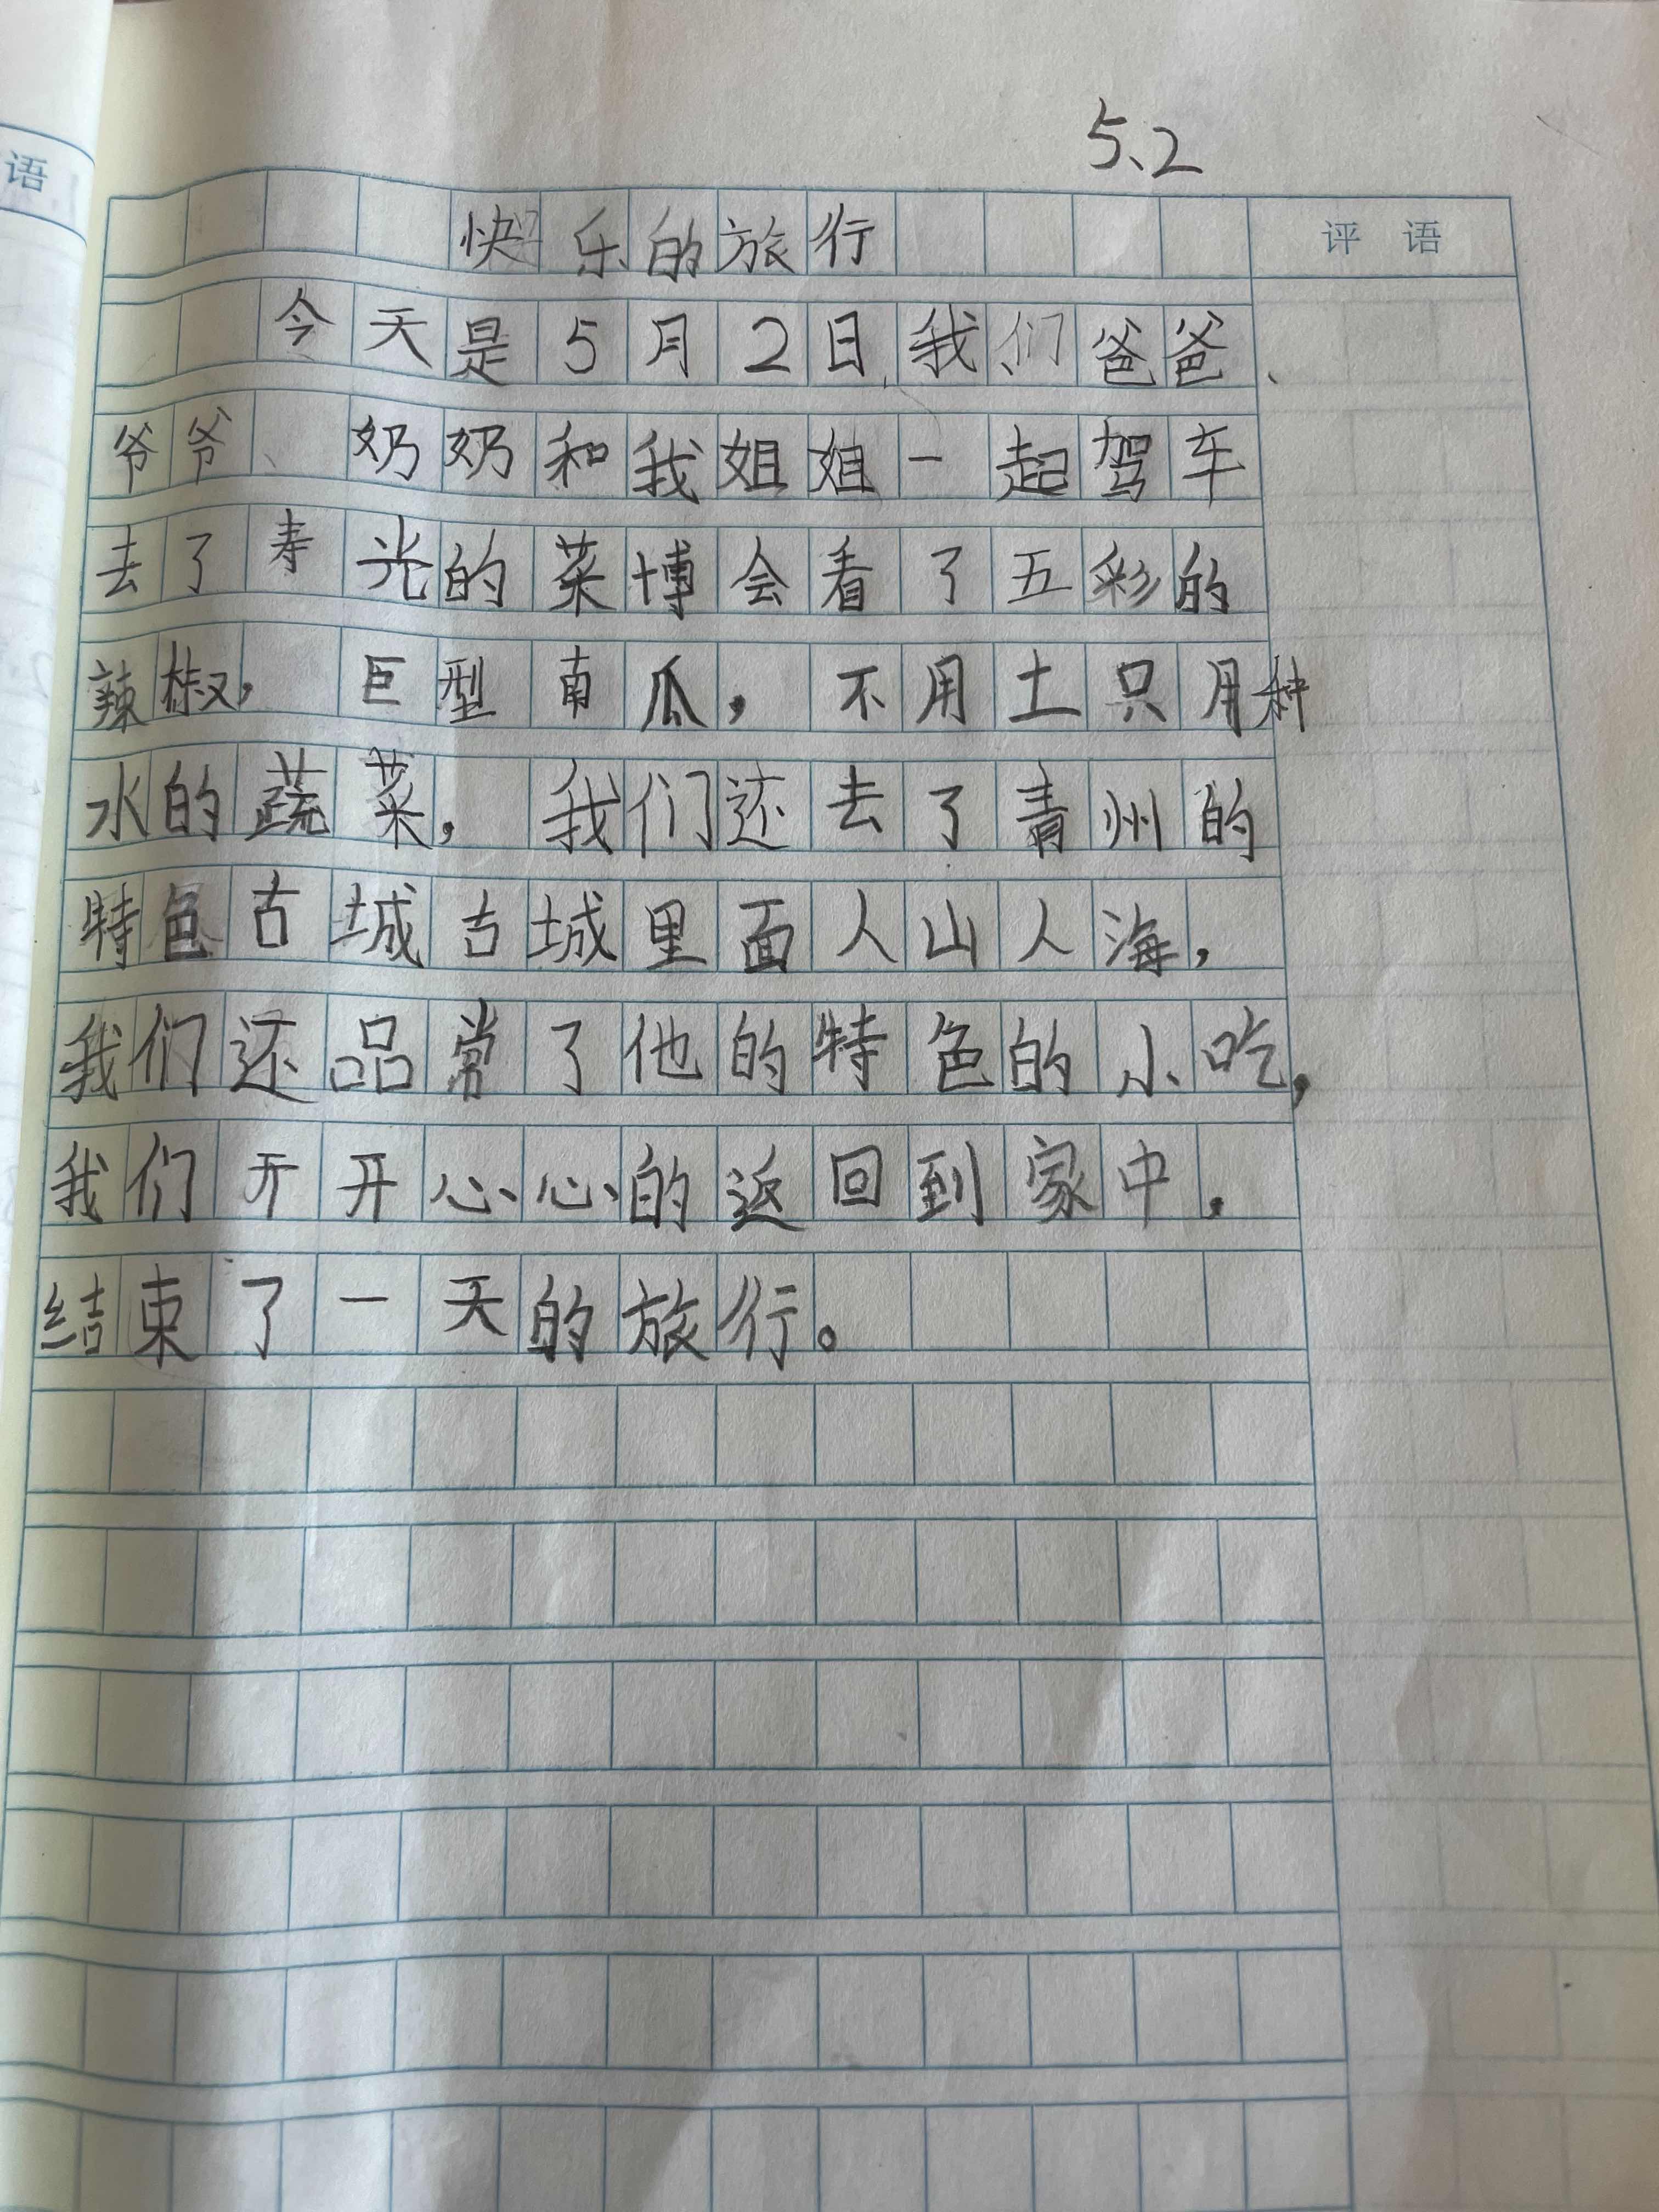 5、2
语
快乐的旅行
评 语
今天是5月2日,我们爸爸、
爷爷、奶奶和我姐姐一起驾车
去了寿光的菜博会看了五彩的
辣椒，巨型南瓜，不用土只用种
水的蔬菜，我们还去了青州的
特色古城古城里面人山人海，
我们还品常了他的特色的小吃，
我们开开心心的返回到家中，
结束了一天的旅行。